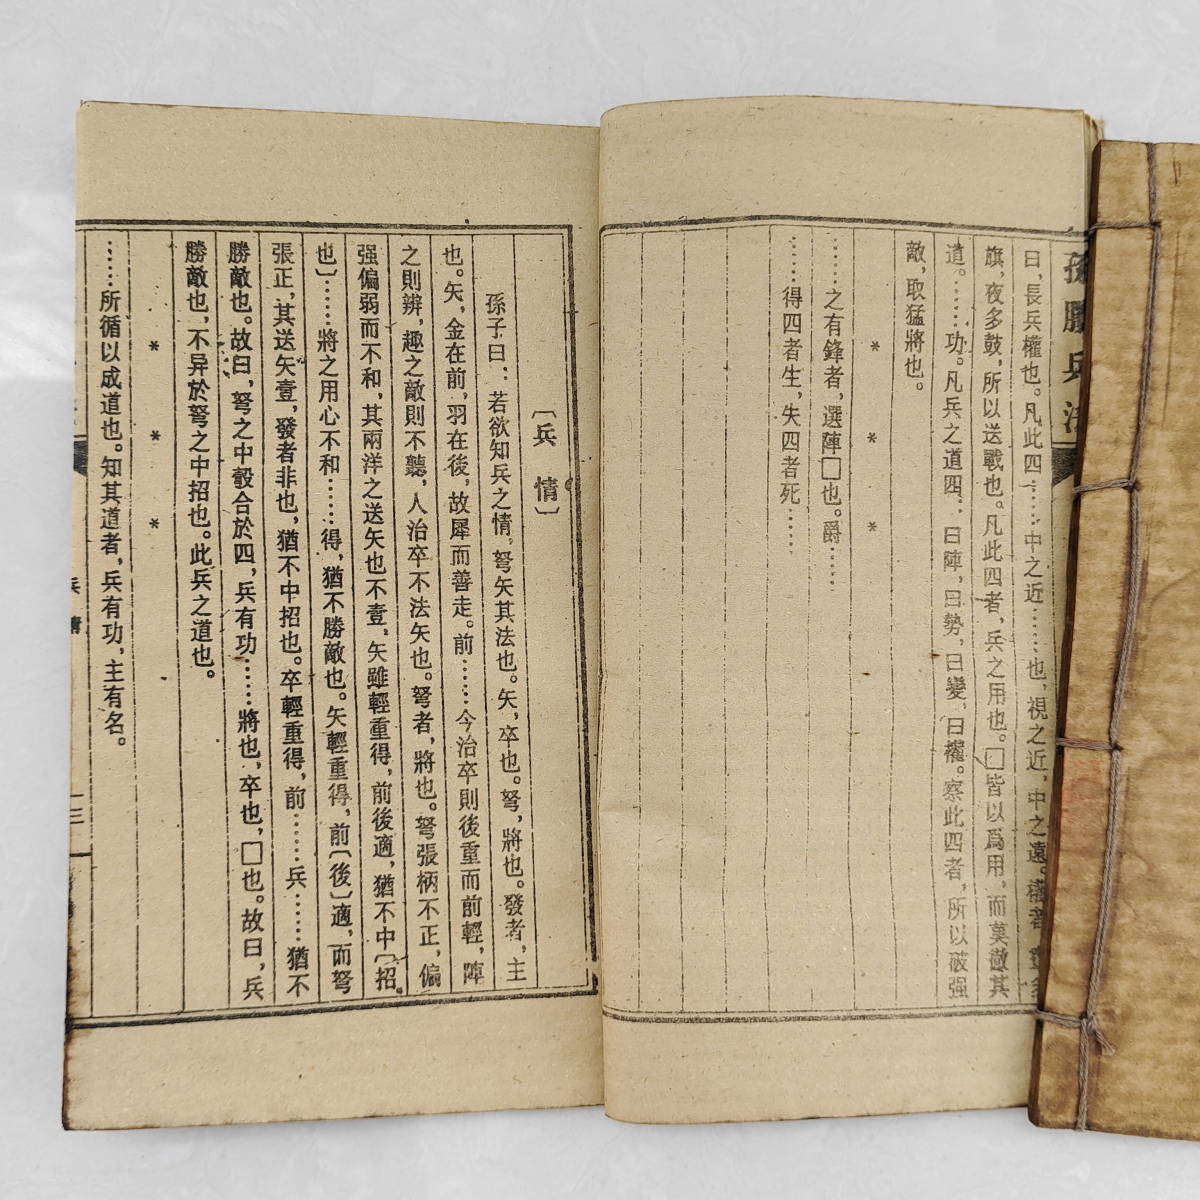 孫臏兵法
曰,長兵權也。凡此四……中之近……也,視之近,中之遠。權者,晝多
旗,夜多鼓,所以送戰也。凡此四者,兵之用也。□皆以爲用,而莫徹其
道。……功。凡兵之道四:曰陣,曰勢,曰變,曰權。察此四者,所以破强
敵,取猛將也。
* * *
……之有鋒者,選陣□也。爵……
……得四者生,失四者死……
〔兵 情〕
孫子曰:若欲知兵之情,弩矢其法也。矢,卒也。弩,將也。發者,主
也。矢,金在前,羽在後,故犀而善走。前……今治卒則後重而前輕,陣
之則辨,趣之敵則不聽,人治卒不法矢也。弩者,將也。弩張柄不正,偏
强偏弱而不和,其兩洋之送矢也不壹,矢雖輕重得,前後適,猶不中〔招
也〕……將之用心不和……得,猶不勝敵也。矢輕重得,前〔後〕適,而弩
張正,其送矢壹,發者非也,猶不中招也。卒輕重得,前……兵……猶不
勝敵也。故曰,弩之中彀合於四,兵有功……將也,卒也,□也。故曰,兵
勝敵也,不异於弩之中招也。此兵之道也。
* * *
……所循以成道也。知其道者,兵有功,主有名。
兵情
一三